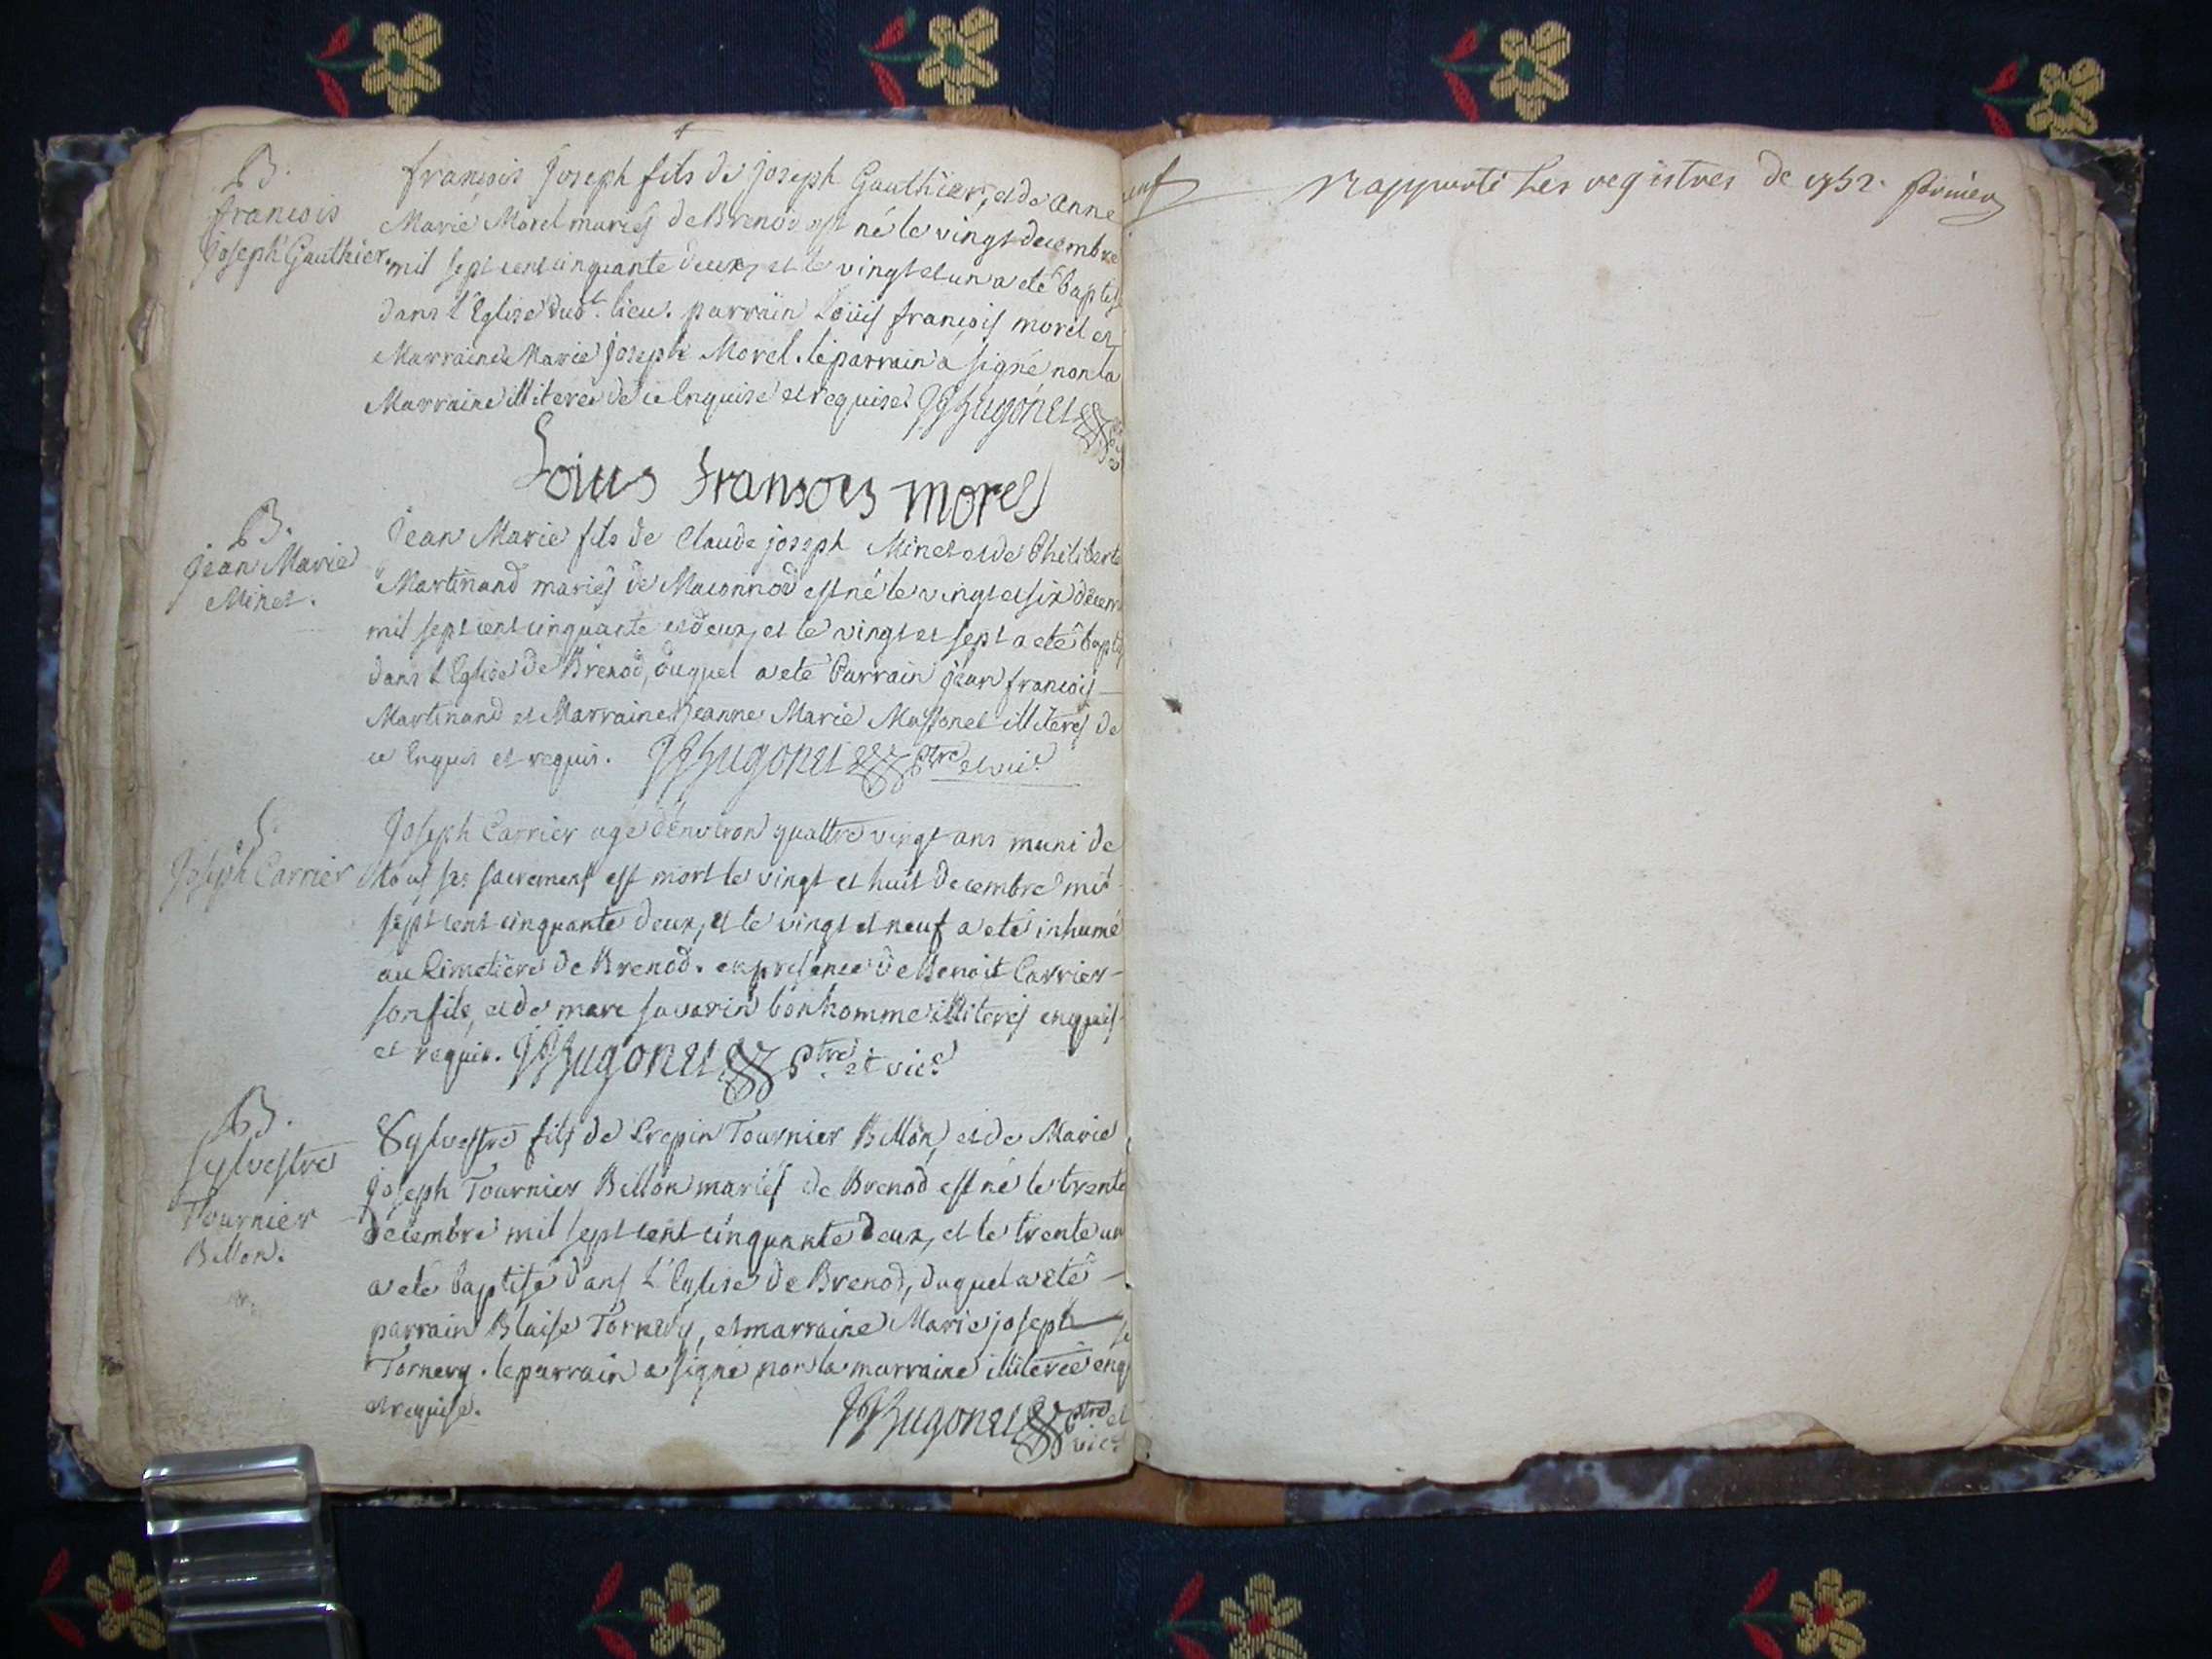 B.
francois
joseph Gauthier.
francois joseph fils de joseph Gauthier, et de Anne
Marie Morel mariés de Brenod est né le vingt decembre
mil sept cent cinquante deux, et le vingt et un a eté baptisé
dans l'Eglise dud.t lieu. parrain Loüis françois morel et
Marraine Marie joseph Morel. le parrain a signé non la
Marraine illiteree de ce Enquise et requise. Hugonet
Loius Fransoes morel
B.
jean Marie
Minet.
jean Marie fils de Claude joseph Minet et de Philiberte
Martinand mariés de Maconnod est né le vingt et six decem
mil sept cent cinquante et deux, et le vingt et sept a eté bapt
dans l'Eglise de Brenod, duquel a eté Parrain jean francois
Martinand et Marraine jeanne Marie Massonet illiterés de
ce Enquis et requis. Hugonet ptre et vic.e
S.
Joseph Carrier
Joseph Carrier agé d'environ quattre vingt ans muni de
tous ses sacremens est mort le vingt et huit decembre mil
sept cent cinquante deux, et le vingt et neuf a eté inhumé
au Cimetière de Brenod. en présence de Benoit Carrier
son fils, et de marc savarin bonhomme illiterés enquis
et requis. Hugonet ptre et vic.e
B.
sylvestre
Tournier
Billon.
Sylvestre fils de Crepin Tournier Billon, et de Marie
joseph Tournier Billon mariés de Brenod est né le trente
decembre mil sept cent cinquante deux, et le trente un
a eté baptisé dans L'Eglise de Brenod, duquel a eté
parrain Blaise Tornery, et marraine Marie joseph
Tornery. le parrain a signé non la marraine illiterée enq
et requise.
Hugonet ptre et
vic.e
Rapporté Les registres de 1752.